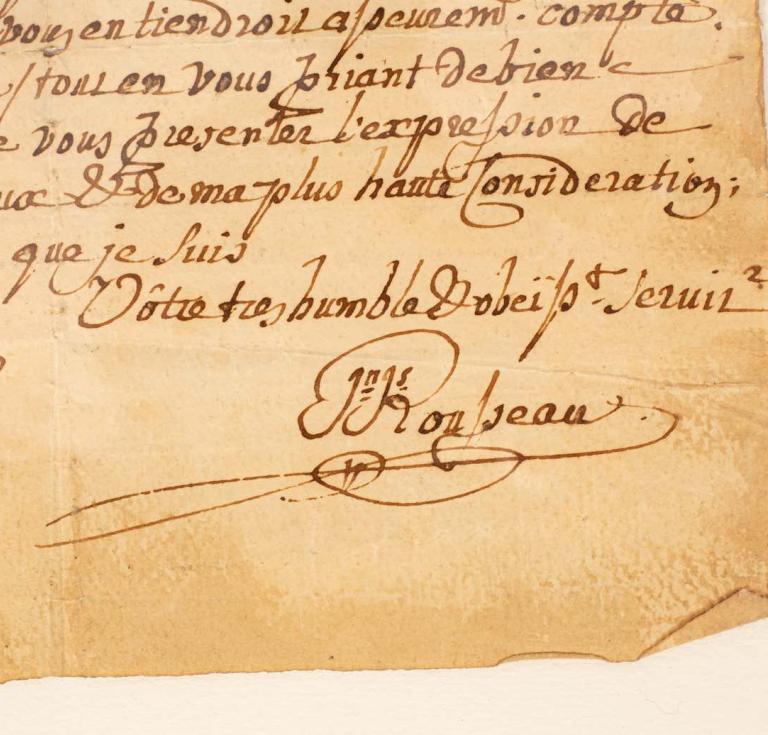 vous en tiendroit asseurem.t compte.
tout en vous priant de bien
vous presenter l'expression de
& de ma plus haute Consideration;
que je suis
Vôtre tres humble & obeïss.t Servit.r
Jn Js Rousseau